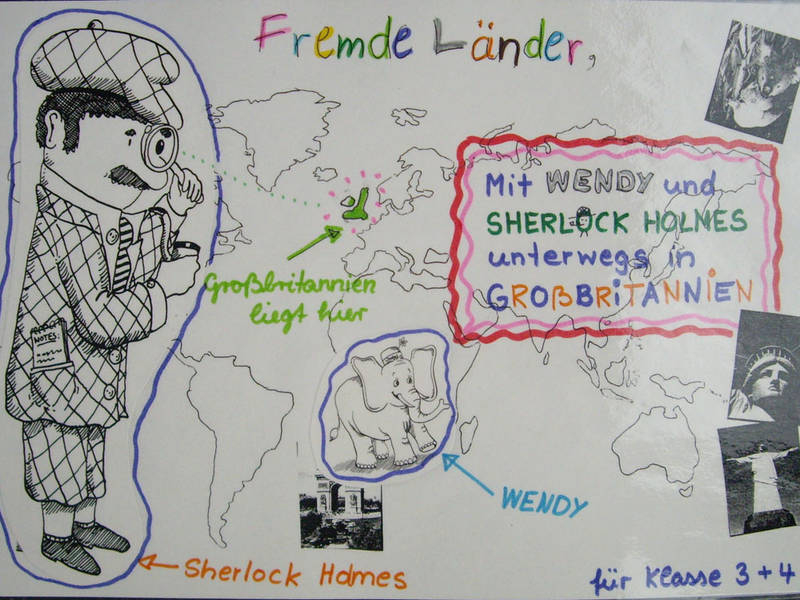 Fremde Länder,
Mit WENDY und
SHERLOCK HOLMES
unterwegs in
GROßBRiTANNiEN
Großbritannien
liegt hier
NOTES:
WENDY
Sherlock Holmes
für Klasse 3 + 4